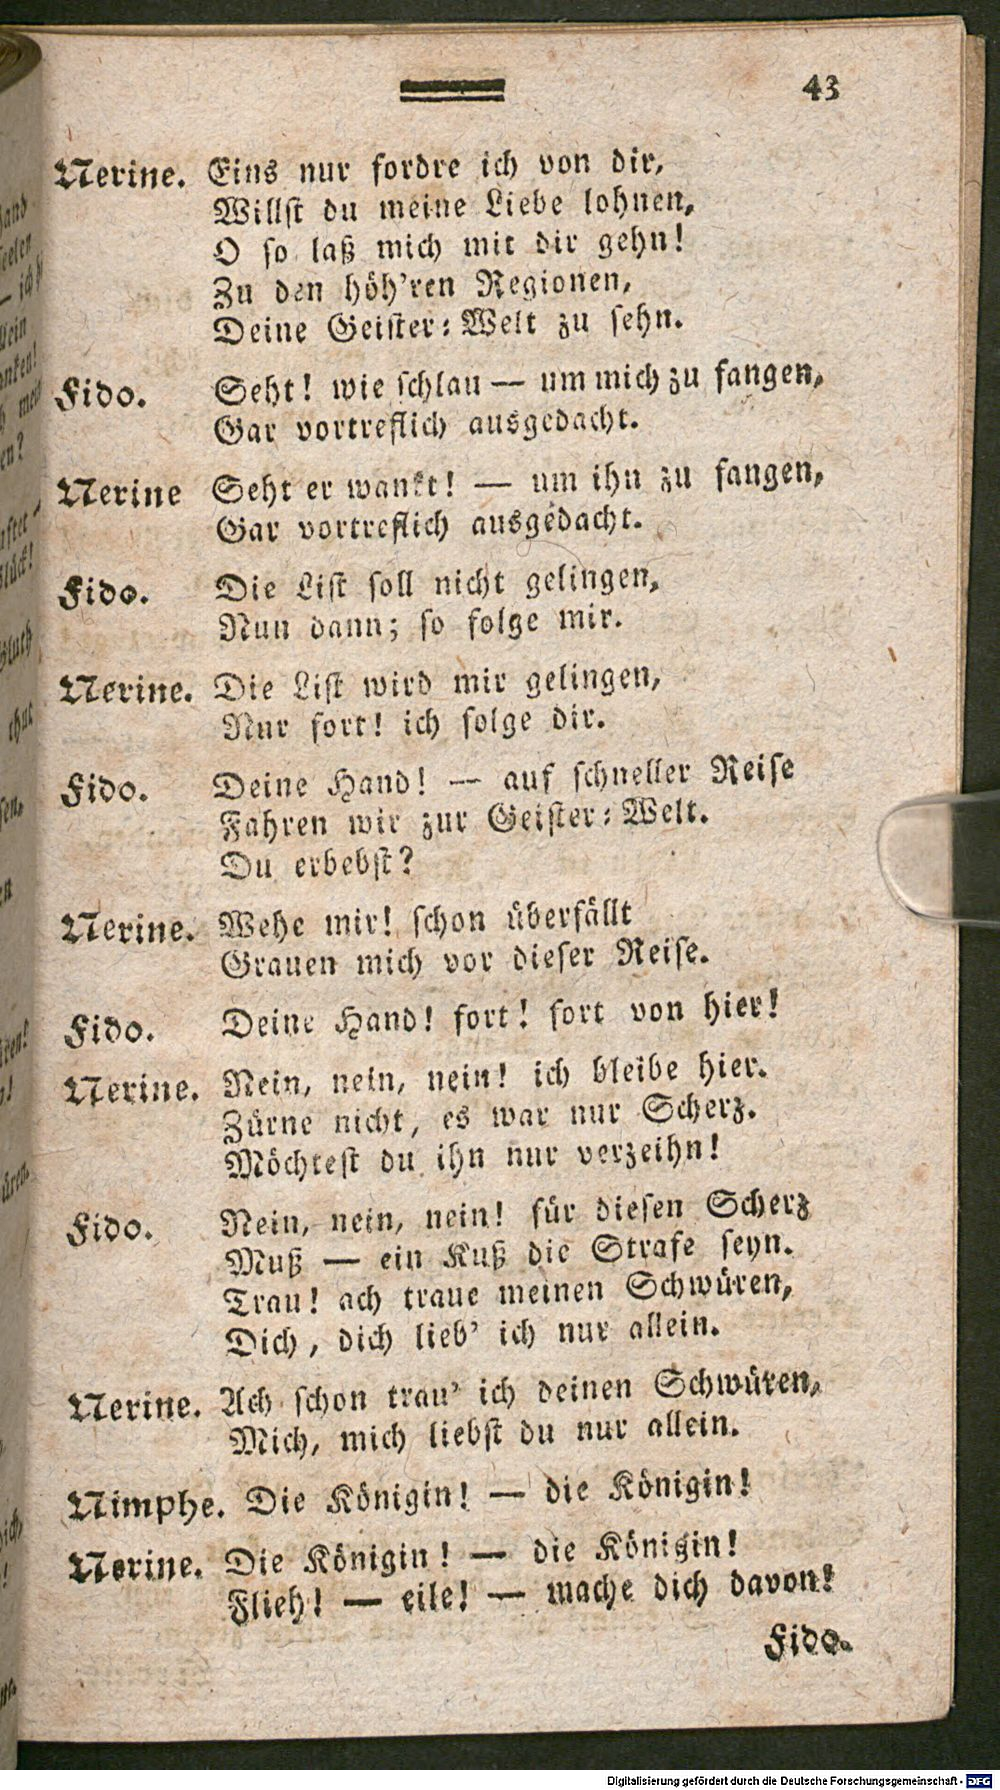 43
Nerine. Eins nur fordre ich von dir,
Willst du meine Liebe lohnen,
O so laß mich mit dir gehn!
Zu den höh'ren Regionen,
Deine Geister-Welt zu sehn.
Fido. Seht! wie schlau — um mich zu fangen,
Gar vortreflich ausgedacht.
Nerine Seht er wankt! — um ihn zu fangen,
Gar vortreflich ausgedacht.
Fido. Die List soll nicht gelingen,
Nun dann; so folge mir.
Nerine. Die List wird mir gelingen,
Nur fort! ich folge dir.
Fido. Deine Hand! — auf schneller Reise
Fahren wir zur Geister-Welt.
Du erbebst?
Nerine. Wehe mir! schon überfällt
Grauen mich vor dieser Reise.
Fido. Deine Hand! fort! fort von hier!
Nerine. Nein, nein, nein! ich bleibe hier.
Zürne nicht, es war nur Scherz.
Möchtest du ihn nur verzeihn!
Fido. Nein, nein, nein! für diesen Scherz
Muß — ein Kuß die Strafe seyn.
Trau! ach traue meinen Schwüren,
Dich, dich lieb' ich nur allein.
Nerine. Ach schon trau' ich deinen Schwüren,
Mich, mich liebst du nur allein.
Nimphe. Die Königin! — die Königin!
Nerine. Die Königin! — die Königin!
Flieh! — eile! — mache dich davon!
Fido.
Digitalisierung gefördert durch die Deutsche Forschungsgemeinschaft - DFG